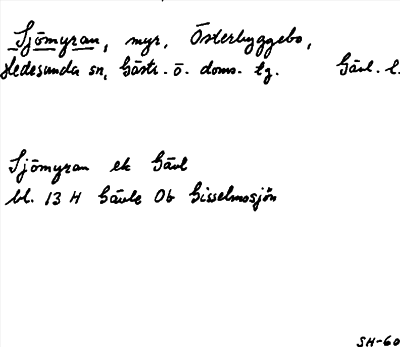 Sjömyran, myr, Österbyggebo,
Hedesunda sn, Gästr. ö. doms. lg. Gävl. l.
Sjömyran ek Gävl
bl. 13 H Gävle 0b Gisselmosjön
SH-60